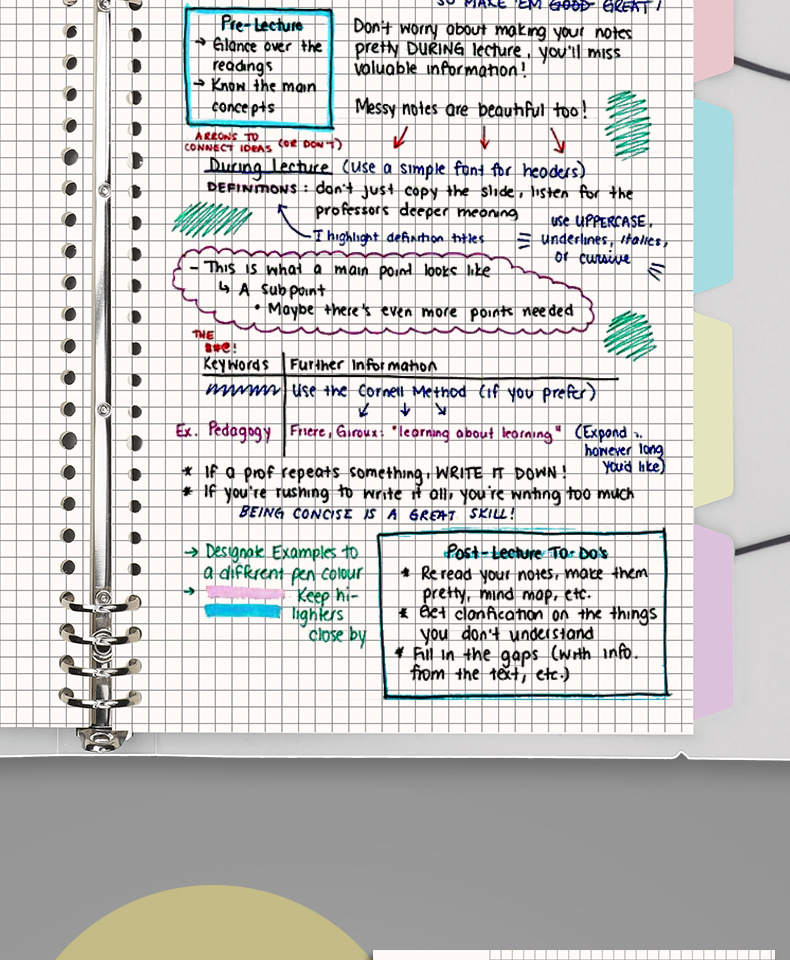 SO MAKE 'EM GOOD GREAT!
Pre-Lecture
→ Glance over the
readings
→ Know the main
concepts
Don't worry about making your notes
pretty DURING lecture, you'll miss
valuable information!
Messy notes are beautiful too!
ARROWS TO
CONNECT IDEAS (OR DON'T)
During lecture (use a simple font for headers)
DEFINITIONS: don't just copy the slide, listen for the
professors deeper meaning
I highlight definition titles
use UPPERCASE,
underlines, italics,
or cursive
- This is what a main point looks like
↳ A Subpoint
• Maybe there's even more points needed
THE
Keywords
Further Information
Use the Cornell Method (if you prefer)
Ex. Pedagogy
Friere, Giroux: "learning about learning"
(Expand
however long
you'd like)
* If a prof repeats something, WRITE IT DOWN!
* If you're rushing to write it all, you're writing too much
BEING CONCISE IS A GREAT SKILL!
→ Designate Examples to
a different pen colour
→ Keep hi-
lighters
close by
Post-Lecture To-Do's
* Reread your notes, make them
pretty, mind map, etc.
* Get clarification on the things
you don't understand
* Fill in the gaps (with info.
from the text, etc.)